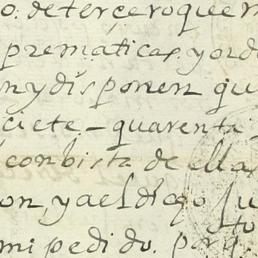 o. deterçero que
prematicas. y ord
n y disponen qu
ciete - quarenta
con bista de ellas
on, y a el dho Ju
mi pedido. por q